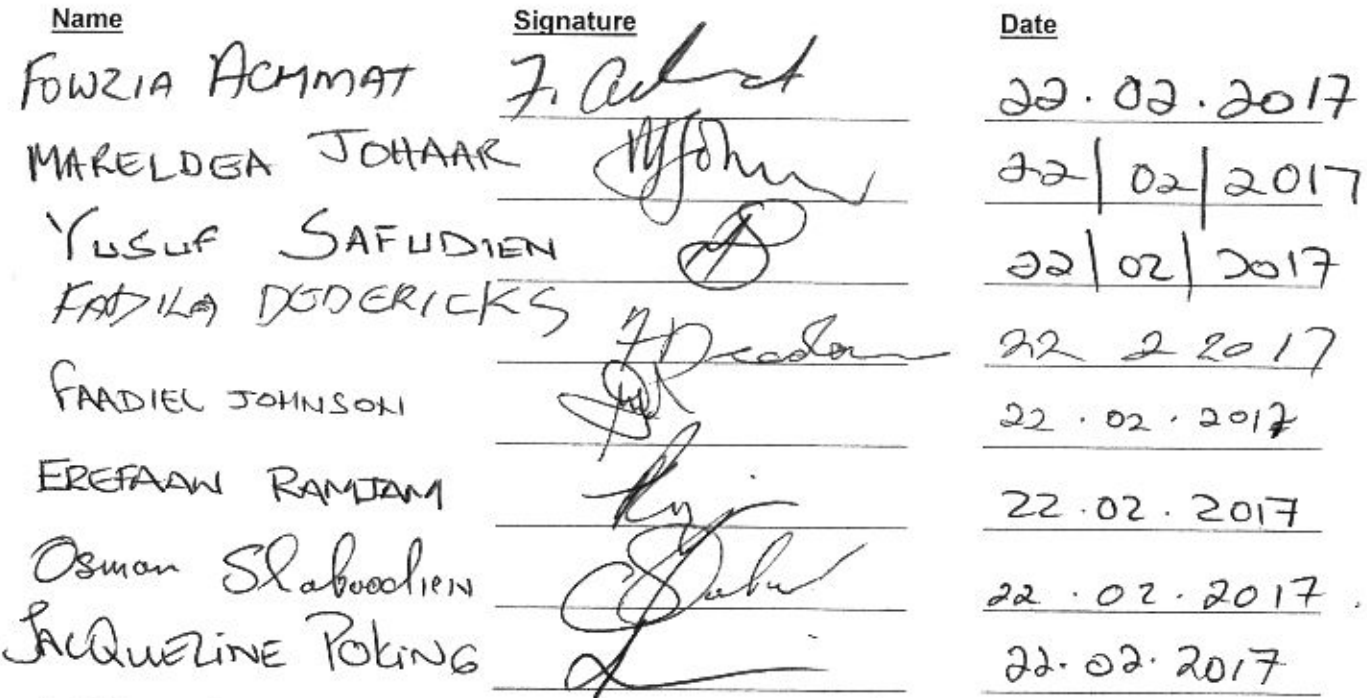 Name Signature Date
FOWZIA ACHMAT F. Achmat 22.02.2017
MARELDEA JOHAAR MJoh 22|02|2017
YUSUF SAFUDIEN 22|02|2017
FADILA DEDERICKS 22 2 2017
FAADIEL JOHNSON 22.02.2017
EREFAAN RAMJAM 22.02.2017
Osman Slaboodien 22.02.2017.
JACQUELINE POKING 22.02.2017